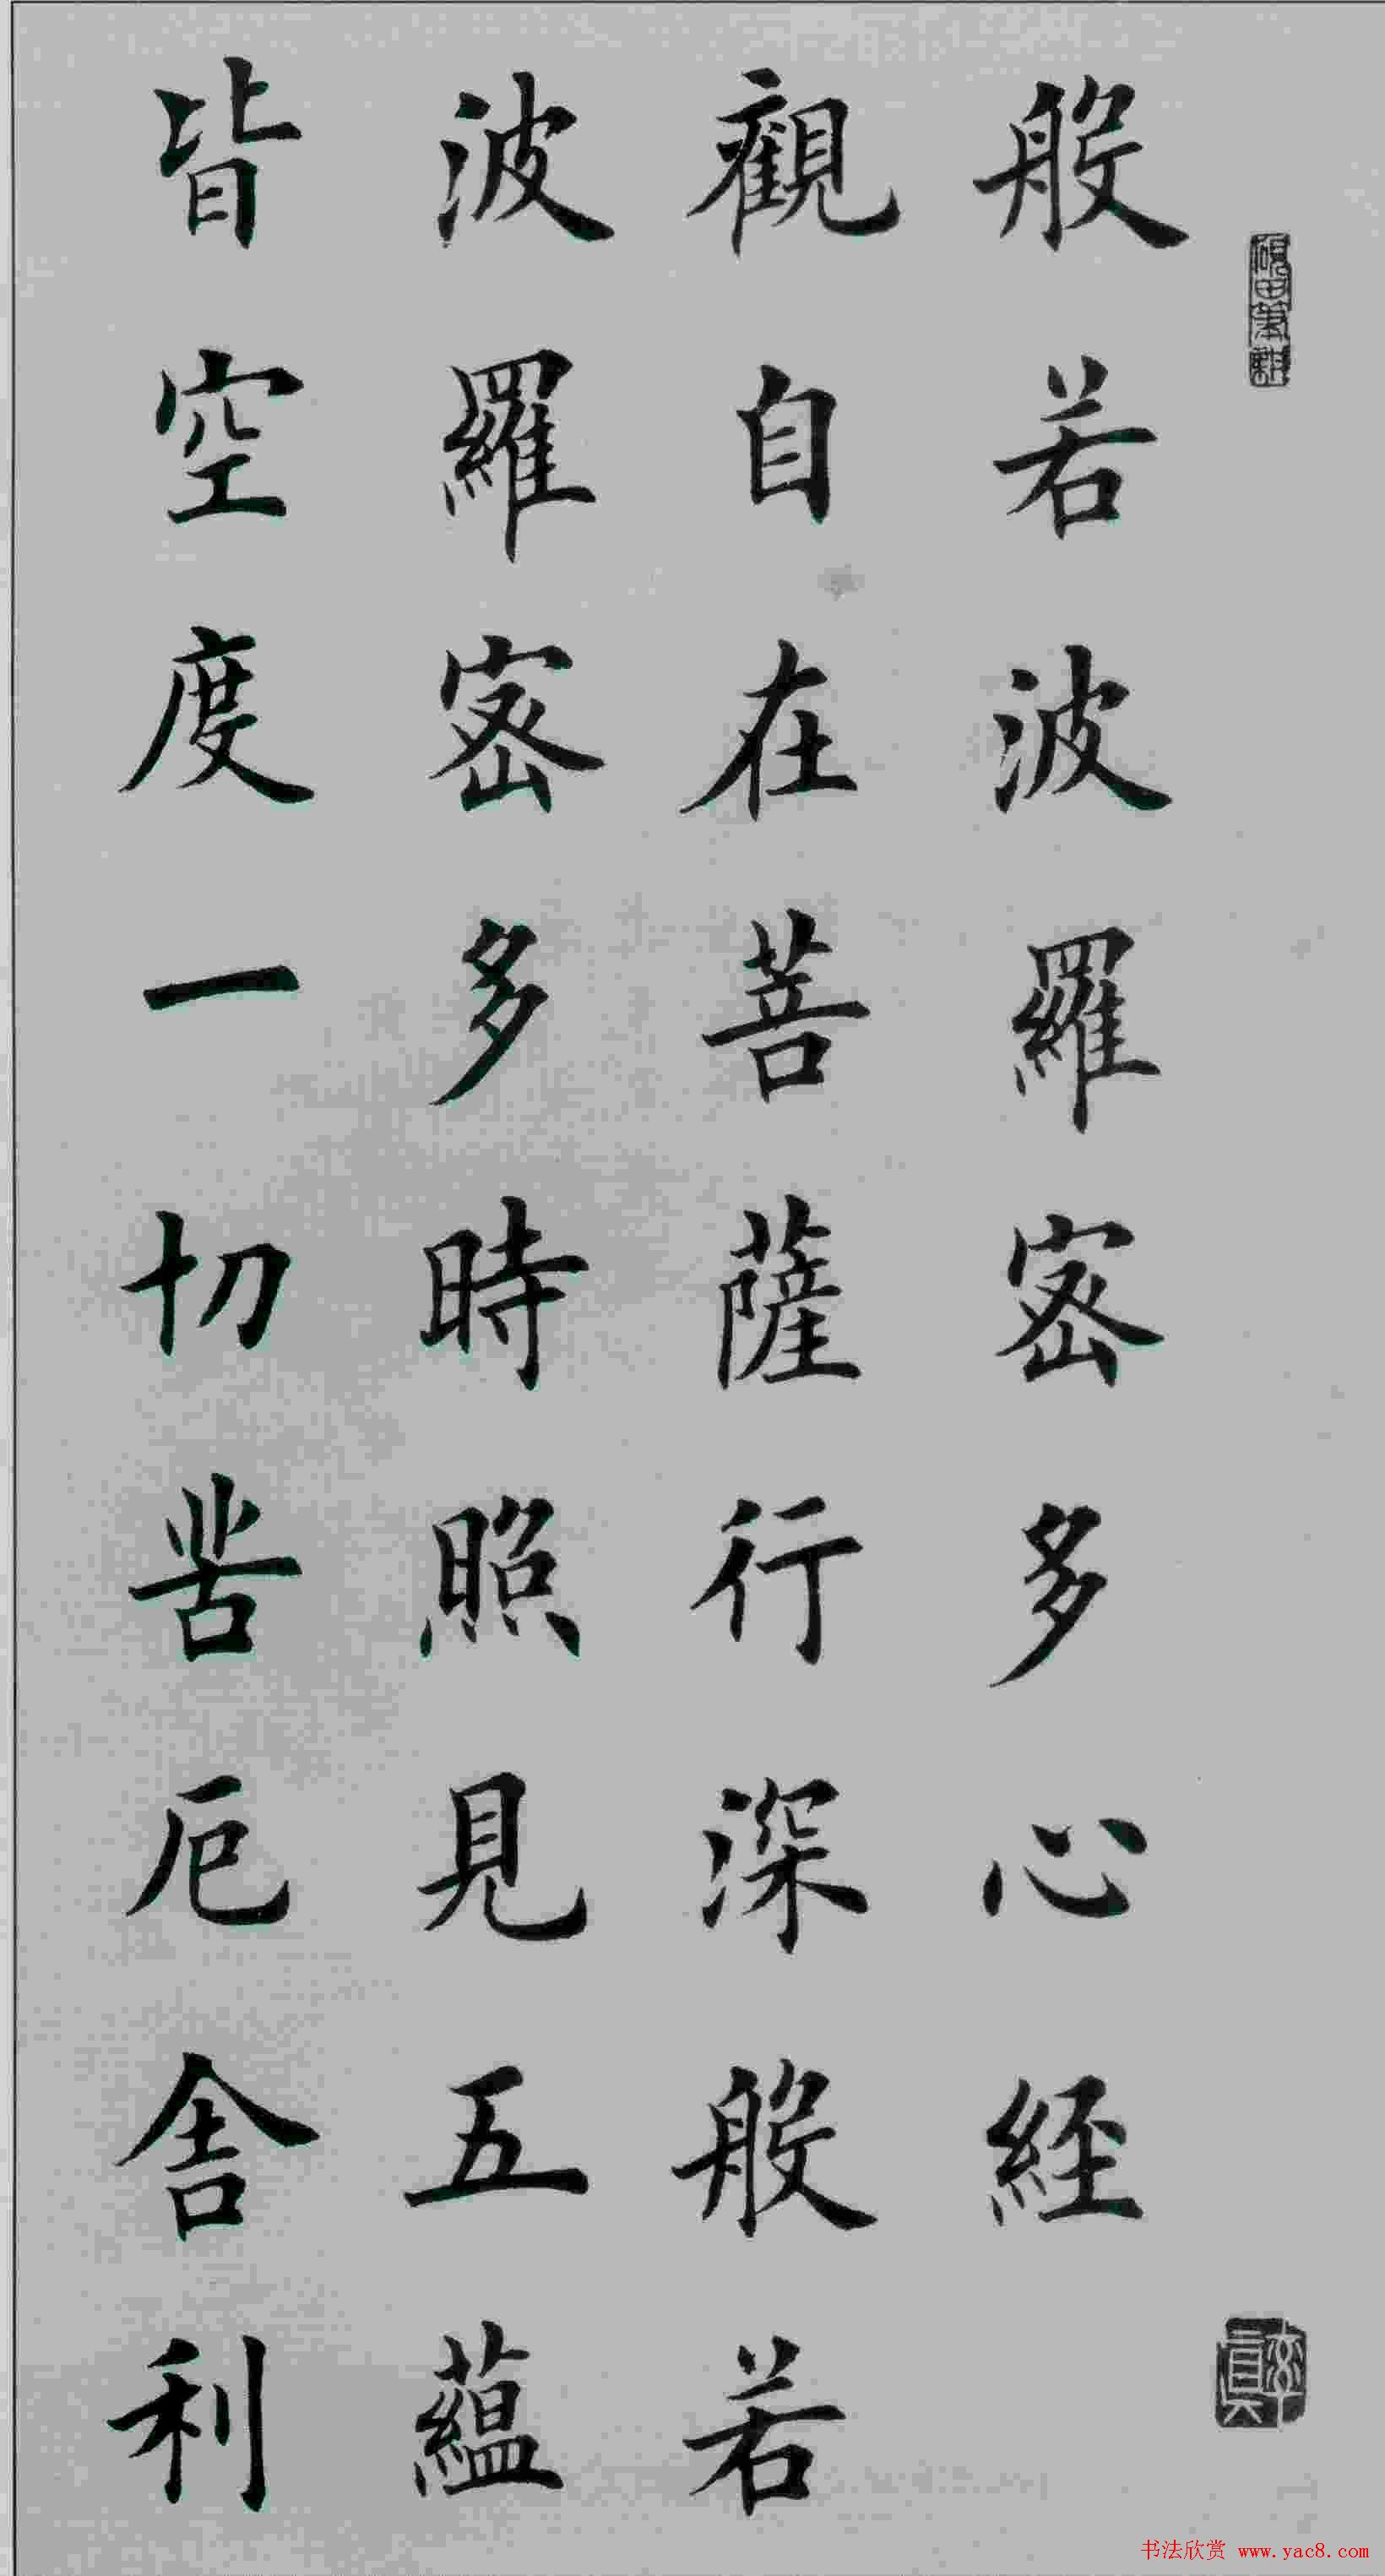 般若波羅密多心經
觀自在菩薩行深般若
波羅密多時照見五蘊
皆空度一切苦厄舍利
硯田筆耕
率真
书法欣赏 www.yac8.com